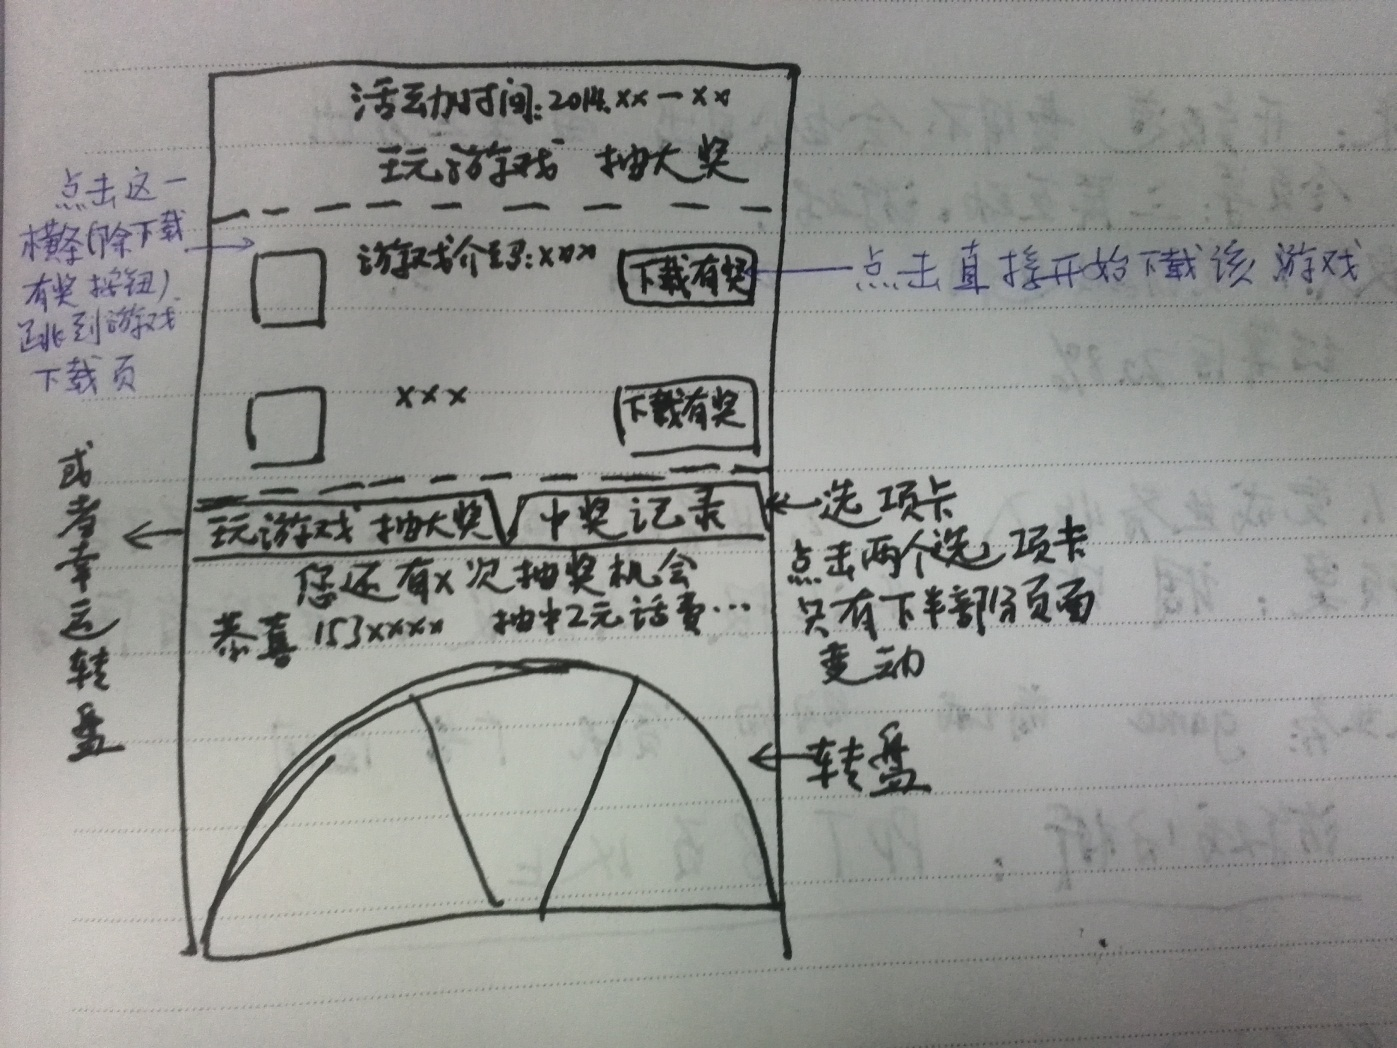 活动时间:2014.xx—xx
玩游戏 抽大奖
点击这一
横条(除下载
有奖按钮)
跳到游戏
下载页
游戏介绍:xxx
下载有奖
点击直接开始下载该游戏
xxx
下载有奖
或者幸运转盘
玩游戏 抽大奖
中奖记录
选项卡
点击两个选项卡
只有下半部分页面
变动
您还有x次抽奖机会
恭喜 153xxxx 抽中2元话费…
转盘